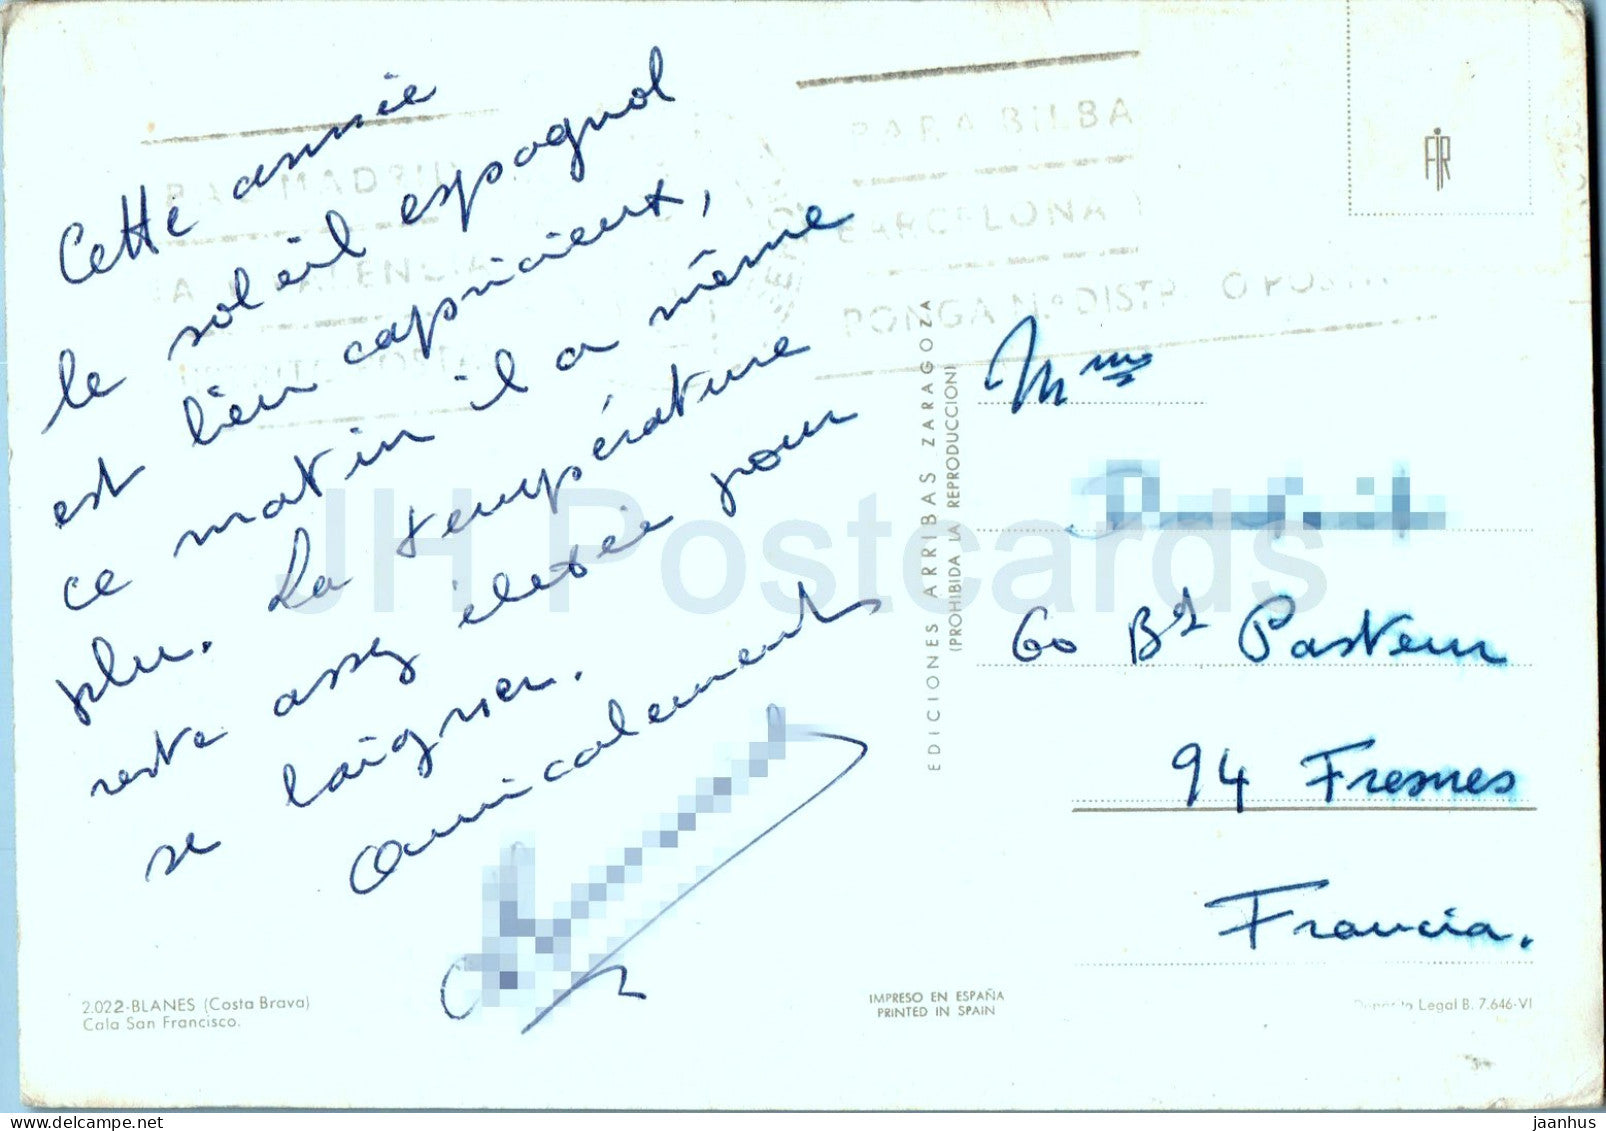 Cette année
le soleil espagnol
est bien capricieux,
ce matin il a même
plu. La température
reste assez élevée pour
se baigner.
Amicalement
2.022-BLANES (Costa Brava)
Cala San Francisco.
PARA MADRID
VALENCIA
PARA BILBA
BARCELONA 1
PONGA Nº DISTR O POSTA
EDICIONES ARRIBAS ZARAGOZA
(PROHIBIDA LA REPRODUCCION)
FIR
Mme
60 Bd Pasteur
94 Fresnes
Francia.
IMPRESO EN ESPAÑA
PRINTED IN SPAIN
Deposito Legal B. 7.646-VI
JH Postcards
jaanhus